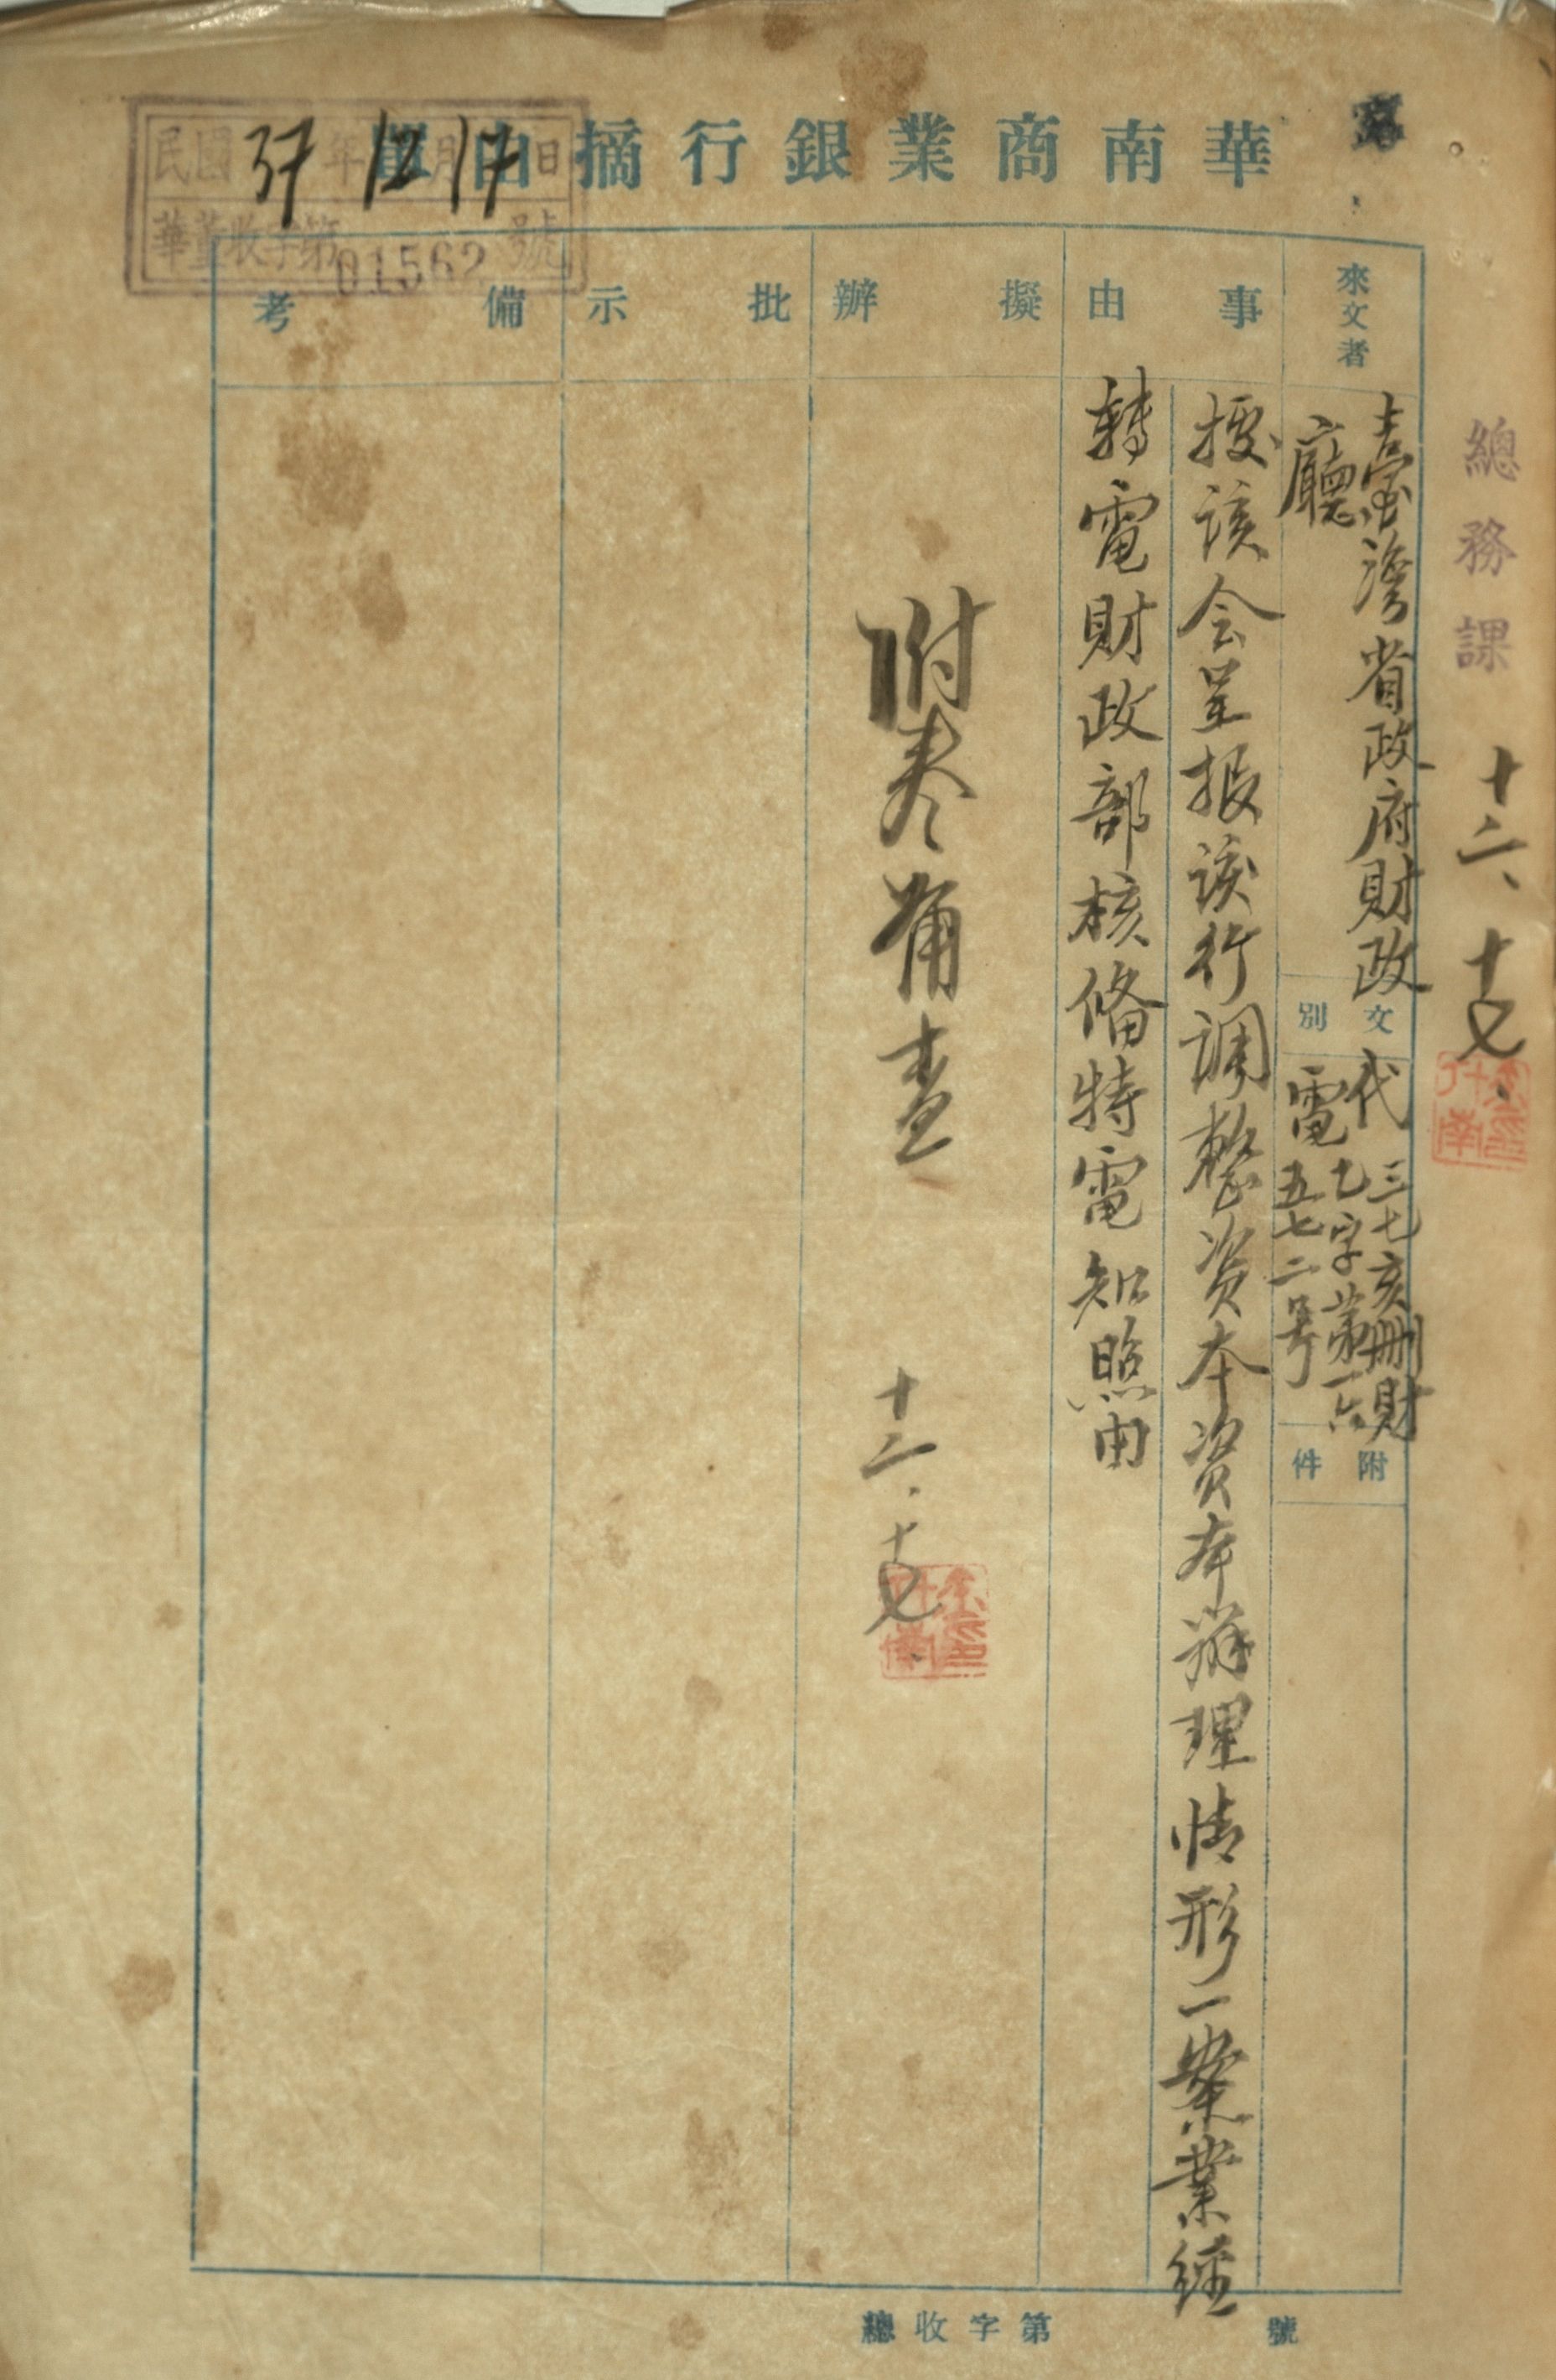 華南商業銀行摘由單
民國37年12月17日
華董收字第01562號
總務課
十二、十七
來文者
臺灣省政府財政
廳
文別
代
電
三七亥刪財
七字第一六
五七二号
附件
事由
據該会呈报該行调整资本资本辦理情形一案業經
轉電財政部核俻特電知照由
擬辦
附卷俻查
十二.十七
批示
備考
總收字第 號